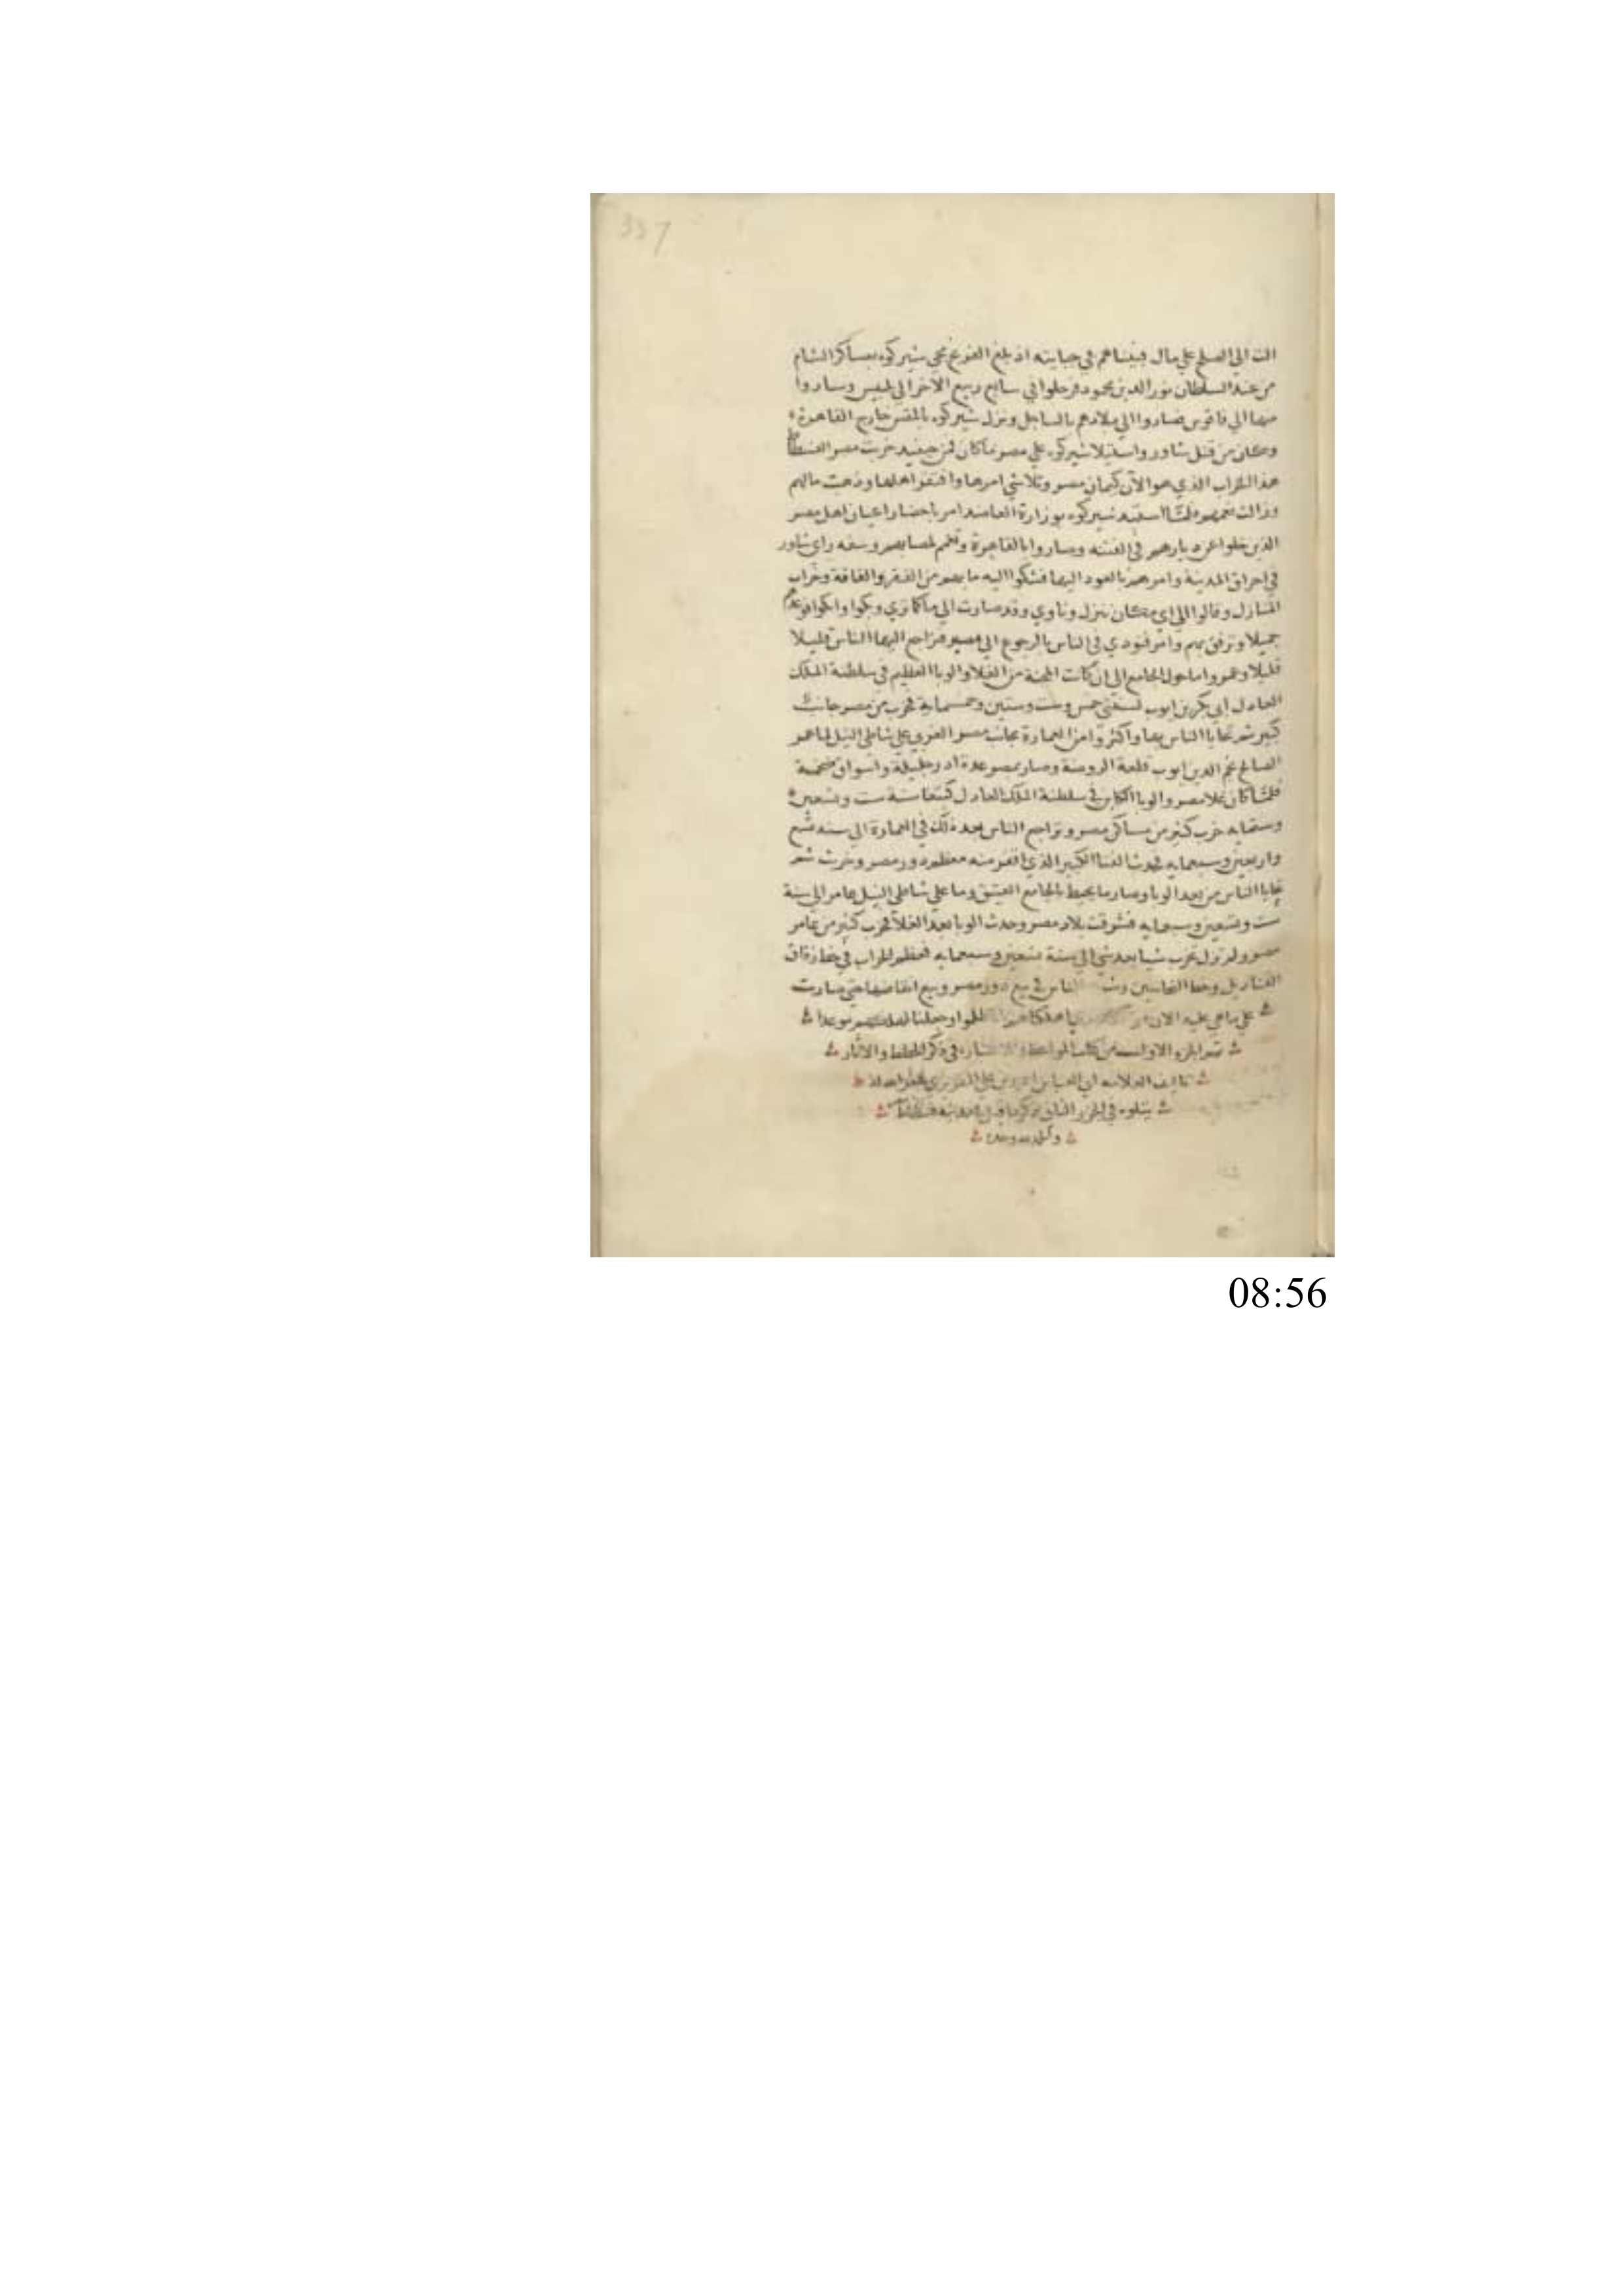 337
الت الي الصلح علي مال فبيناهم في جبايته اذ بلغ الفرنج مجي شيركوه بعساكر الشام
من عند السلطان نور الدين محمود فرحلوا في سابع ربيع الاخر الي بلبيس وساروا
منها الي فاقوس فصاروا الي بلادهم بالساحل ونزل شيركوه بالمقس خارج القاهرة
وكان من قتل شاور واستيلا شيركوه علي مصر ما كان فمن حينيد خربت مصر الفسطاط
هذا الخراب الذي هو الآن كيمان مصر وتلاشي امرها وافتقر اهلها وذهبت مالهم
وزالت نعمهم فلما استبد شيركوه بوزارة العاضد امر باحضار اعيان اهل مصر
الذين خلوا عن ديارهم في الفتنه وصاروا بالقاهرة وتغمم لمصابهم وسفه راي شاور
في احراق المدينة وامرهم بالعود اليها فشكوا اليه ما بهم من الفقر والفاقة وخراب
المنازل وقالوا الي اي مكان ننزل وناوي وقد صارت الي ما تري وبكوا وابكوا فوعدهم
جميلا وترفق بهم وامر فنودي في الناس بالرجوع الي مصر فتراجع اليها الناس قليلا
قليلا وعمروا ما حول الجامع الي ان كانت المحنة من الغلا والوبا العظيم في سلطنة الملك
العادل ابي بكر بن ايوب لسنتي خمس وست وستين وخمسمايه فخرب من مصر جانب
كبير ثم تحايا الناس بها واكثروا من العمارة بجانب مصر الغربي علي شاطي النيل لما عمر
الصالح نجم الدين ايوب قلعة الروضة وصار بمصر عدة ادر جليلة واسواق ضخمة
فلما كان غلا مصر والوبا الكاين في سلطنة الملك العادل كتبغا سنة ست وتسعين
وستمايه خرب كثير من مساكن مصر وتراجع الناس بعد ذلك في العمارة الي سنه تسع
واربعين وسبعمايه فحدث الفنا الكبير الذي اقفر منه معظم دور مصر وخربت ثم
تحايا الناس من بعد الوبا وصار ما يحيط بالجامع العتيق وما علي شاطي النيل عامر الي سنة
ست وتسعين وسبعمايه فشرقت بلاد مصر وحدث الوبا بعد الغلا فخرب كثير من عامر
مصر ولم تزل تخرب شيا بعد شي الي سنة تسعين وسبعمايه فعظم الخراب في خط زقاق
القناديل وخط النحاسين الناس في بيع دور مصر وبيع انقاضها حتي صارت
علي ما هي عليه الان اهلكناهم لما ظلموا وجعلنا لمهلكهم موعدا
تم الجزو الاول من كتاب المواعظ والاعتبار في ذكر الخطط والآثار
تاليف العلامه ابي العباس احمد بن علي المقريزي
يتلوه في الجزو الثاني ذكر ما قيل في مدينة فسطاط
والحمد لله وحده
08:56